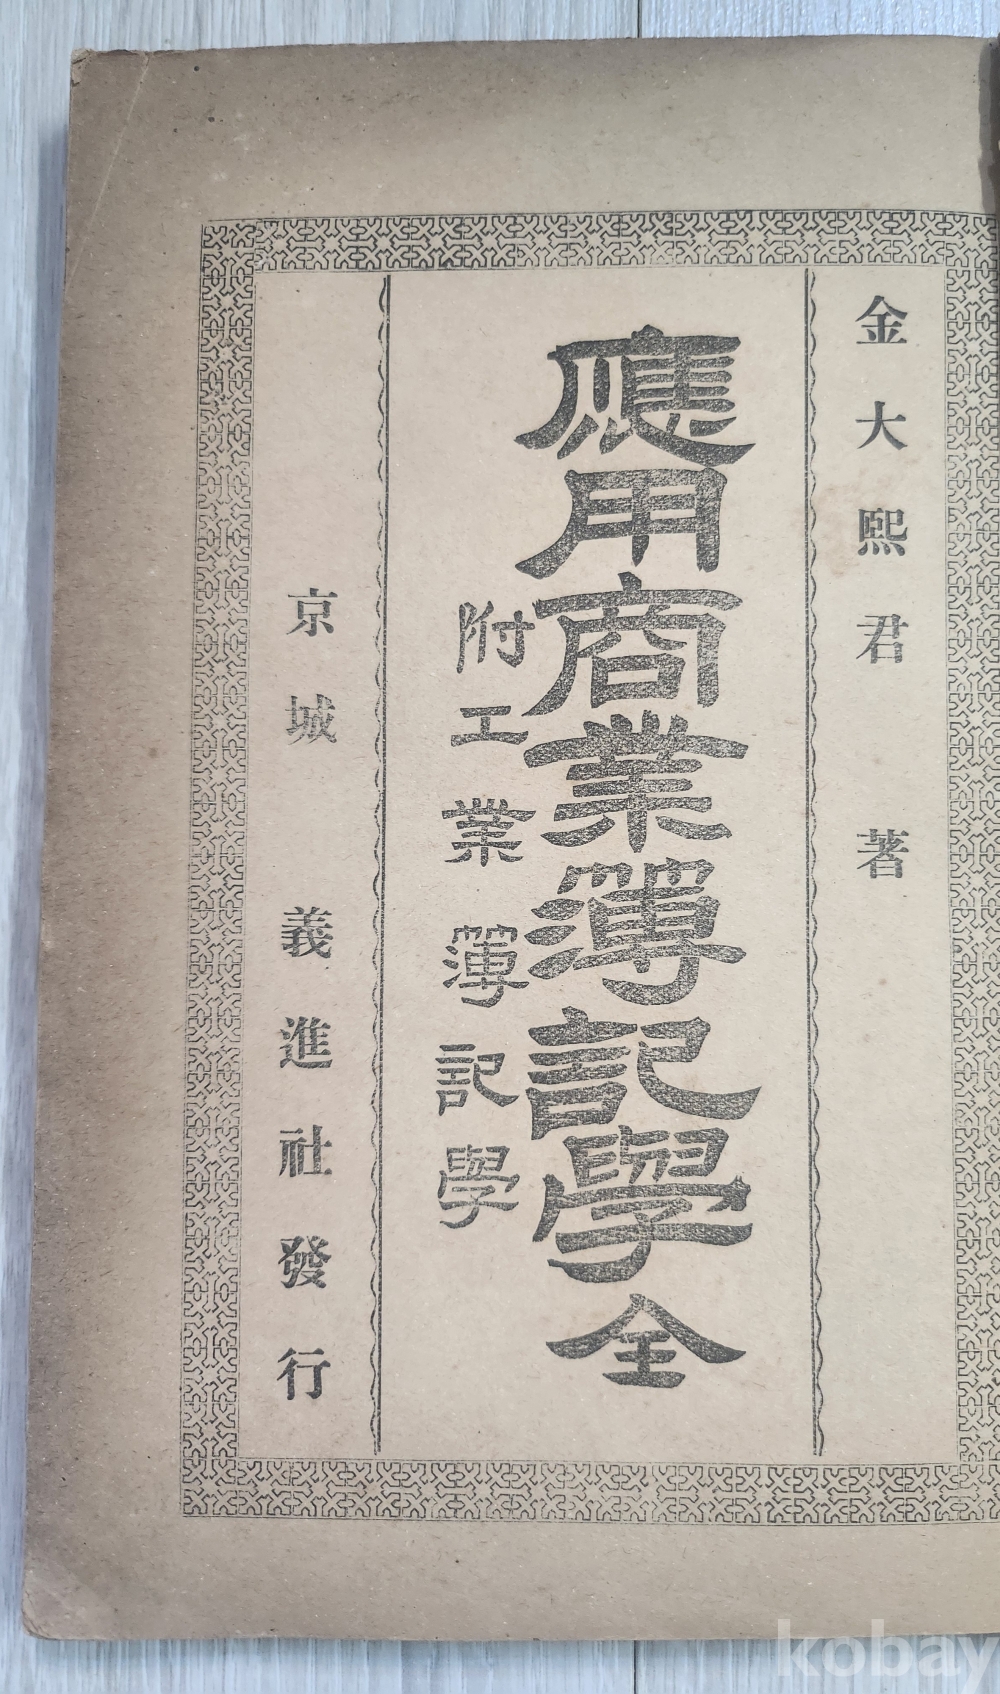 金大熙君 著
應用商業簿記學 全
附工業簿記學
京城 義進社發行
kobay